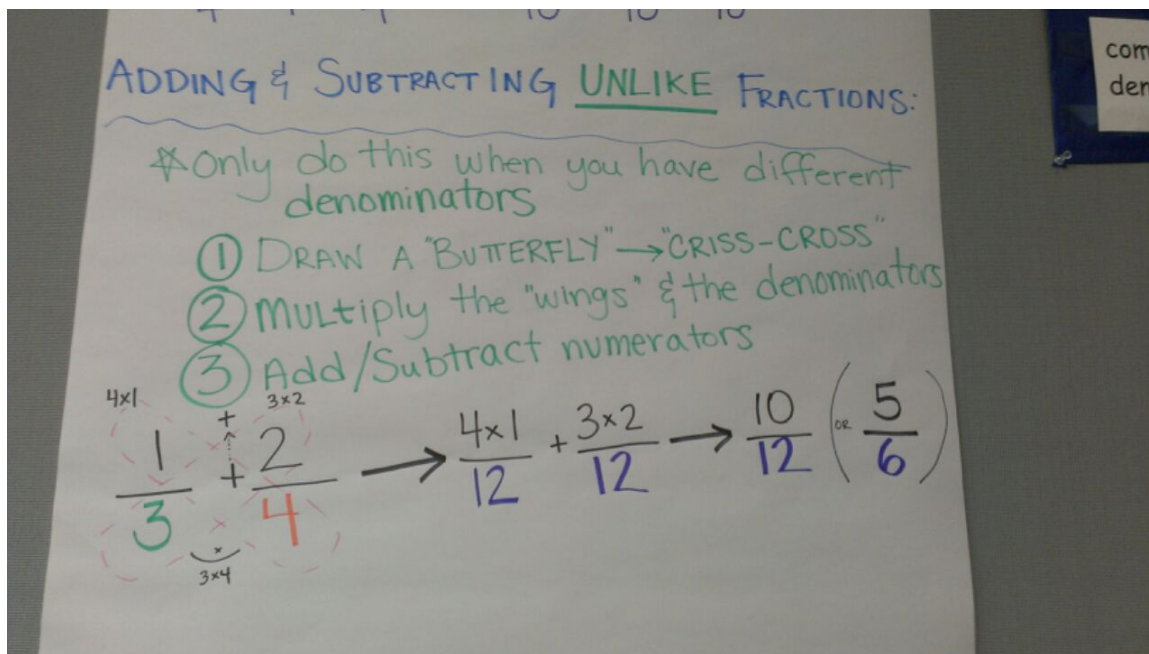 ADDING & SUBTRACTING UNLIKE FRACTIONS:
☆ Only do this when you have different
denominators
① DRAW A "BUTTERFLY" → "CRISS-CROSS"
② Multiply the "wings" & the denominators
③ Add/Subtract numerators
4x1 + 3x2
1/3 + 2/4 → 4x1/12 + 3x2/12 → 10/12 (OR 5/6)
x
3x4
com
der